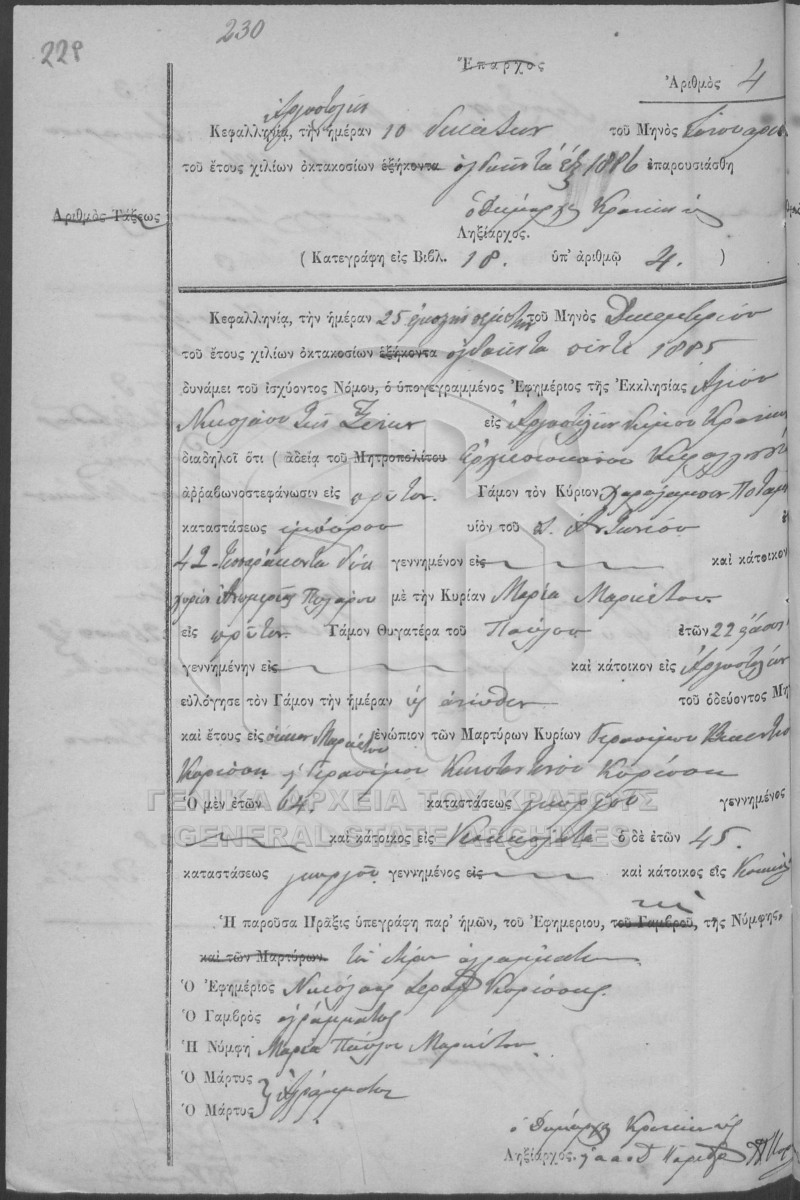 229
230
Ἔπαρχος
Ἀριθμὸς 4
Ἀργοστόλιον
Κεφαλληνία, τὴν ἡμέραν 10 δεκάτην τοῦ Μηνὸς Ἰανουαρίου
τοῦ ἔτους χιλίων ὀκτακοσίων ἑξήκοντα ὀγδοήκοντα ἓξ 1886 ἐπαρουσιάσθη
Ἀριθμὸς Τάξεως
ὁ Δήμαρχος Κρανίων
Ληξίαρχος.
( Κατεγράφη εἰς Βιβλ. 18. ὑπ' ἀριθμῷ 4. )
Κεφαλληνία, τὴν ἡμέραν 25 εἰκοστὴν πέμπτην τοῦ Μηνὸς Δεκεμβρίου
τοῦ ἔτους χιλίων ὀκτακοσίων ἑξήκοντα ὀγδοήκοντα πέντε 1885
δυνάμει τοῦ ἰσχύοντος Νόμου, ὁ ὑπογεγραμμένος Ἐφημέριος τῆς Ἐκκλησίας Ἁγίου
Νικολάου τῶν Ξένων εἰς Ἀργοστόλιον Δήμου Κρανίων
διαδηλοῖ ὅτι ( ἀδείᾳ τοῦ Μητροπολίτου Ἀρχιεπισκόπου Κεφαλληνίας
ἀῤῥαβωνοστεφάνωσιν εἰς πρῶτον Γάμον τὸν Κύριον Χαράλαμπον
καταστάσεως ἐμπόρου υἱὸν τοῦ Ἀντωνίου
42 τεσσαράκοντα δύο γεννημένον εἰς καὶ κάτοικον
χωρίον μὲ τὴν Κυρίαν Μαρία Μαρκέτου
εἰς πρῶτον Γάμον Θυγατέρα τοῦ Παύλου ἐτῶν 22
γεννημένην εἰς καὶ κάτοικον εἰς Ἀργοστόλιον
εὐλόγησε τὸν Γάμον τὴν ἡμέραν ὡς ἄνωθεν τοῦ ὁδεύοντος Μη
καὶ ἔτους εἰς οἰκίαν Μαρκέτου ἐνώπιον τῶν Μαρτύρων Κυρίων Γερασίμου
Γερασίμου Κωνσταντίνου
Ὁ μὲν ἐτῶν 64. καταστάσεως γεωργοῦ γεννημένος
ΓΕΝΙΚΑ ΑΡΧΕΙΑ ΤΟΥ ΚΡΑΤΟΥΣ
GENERAL STATE ARCHIVES
καὶ κάτοικος εἰς Κοκκολάτα ὁ δὲ ἐτῶν 45.
καταστάσεως γεωργοῦ γεννημένος εἰς καὶ κάτοικος εἰς
Ἡ παροῦσα Πρᾶξις ὑπεγράφη παρ' ἡμῶν, τοῦ Ἐφημερίου, τοῦ Γαμβροῦ, τῆς Νύμφης,
καὶ τῶν Μαρτύρων.
Ὁ Ἐφημέριος Νικόλαος
Ὁ Γαμβρὸς ἀγράμματος
Ἡ Νύμφη Μαρία Παύλου Μαρκέτου
Ὁ Μάρτυς
Ἀγράμματοι
Ὁ Μάρτυς
ὁ Δήμαρχος Κρανίων
Ληξίαρχος.